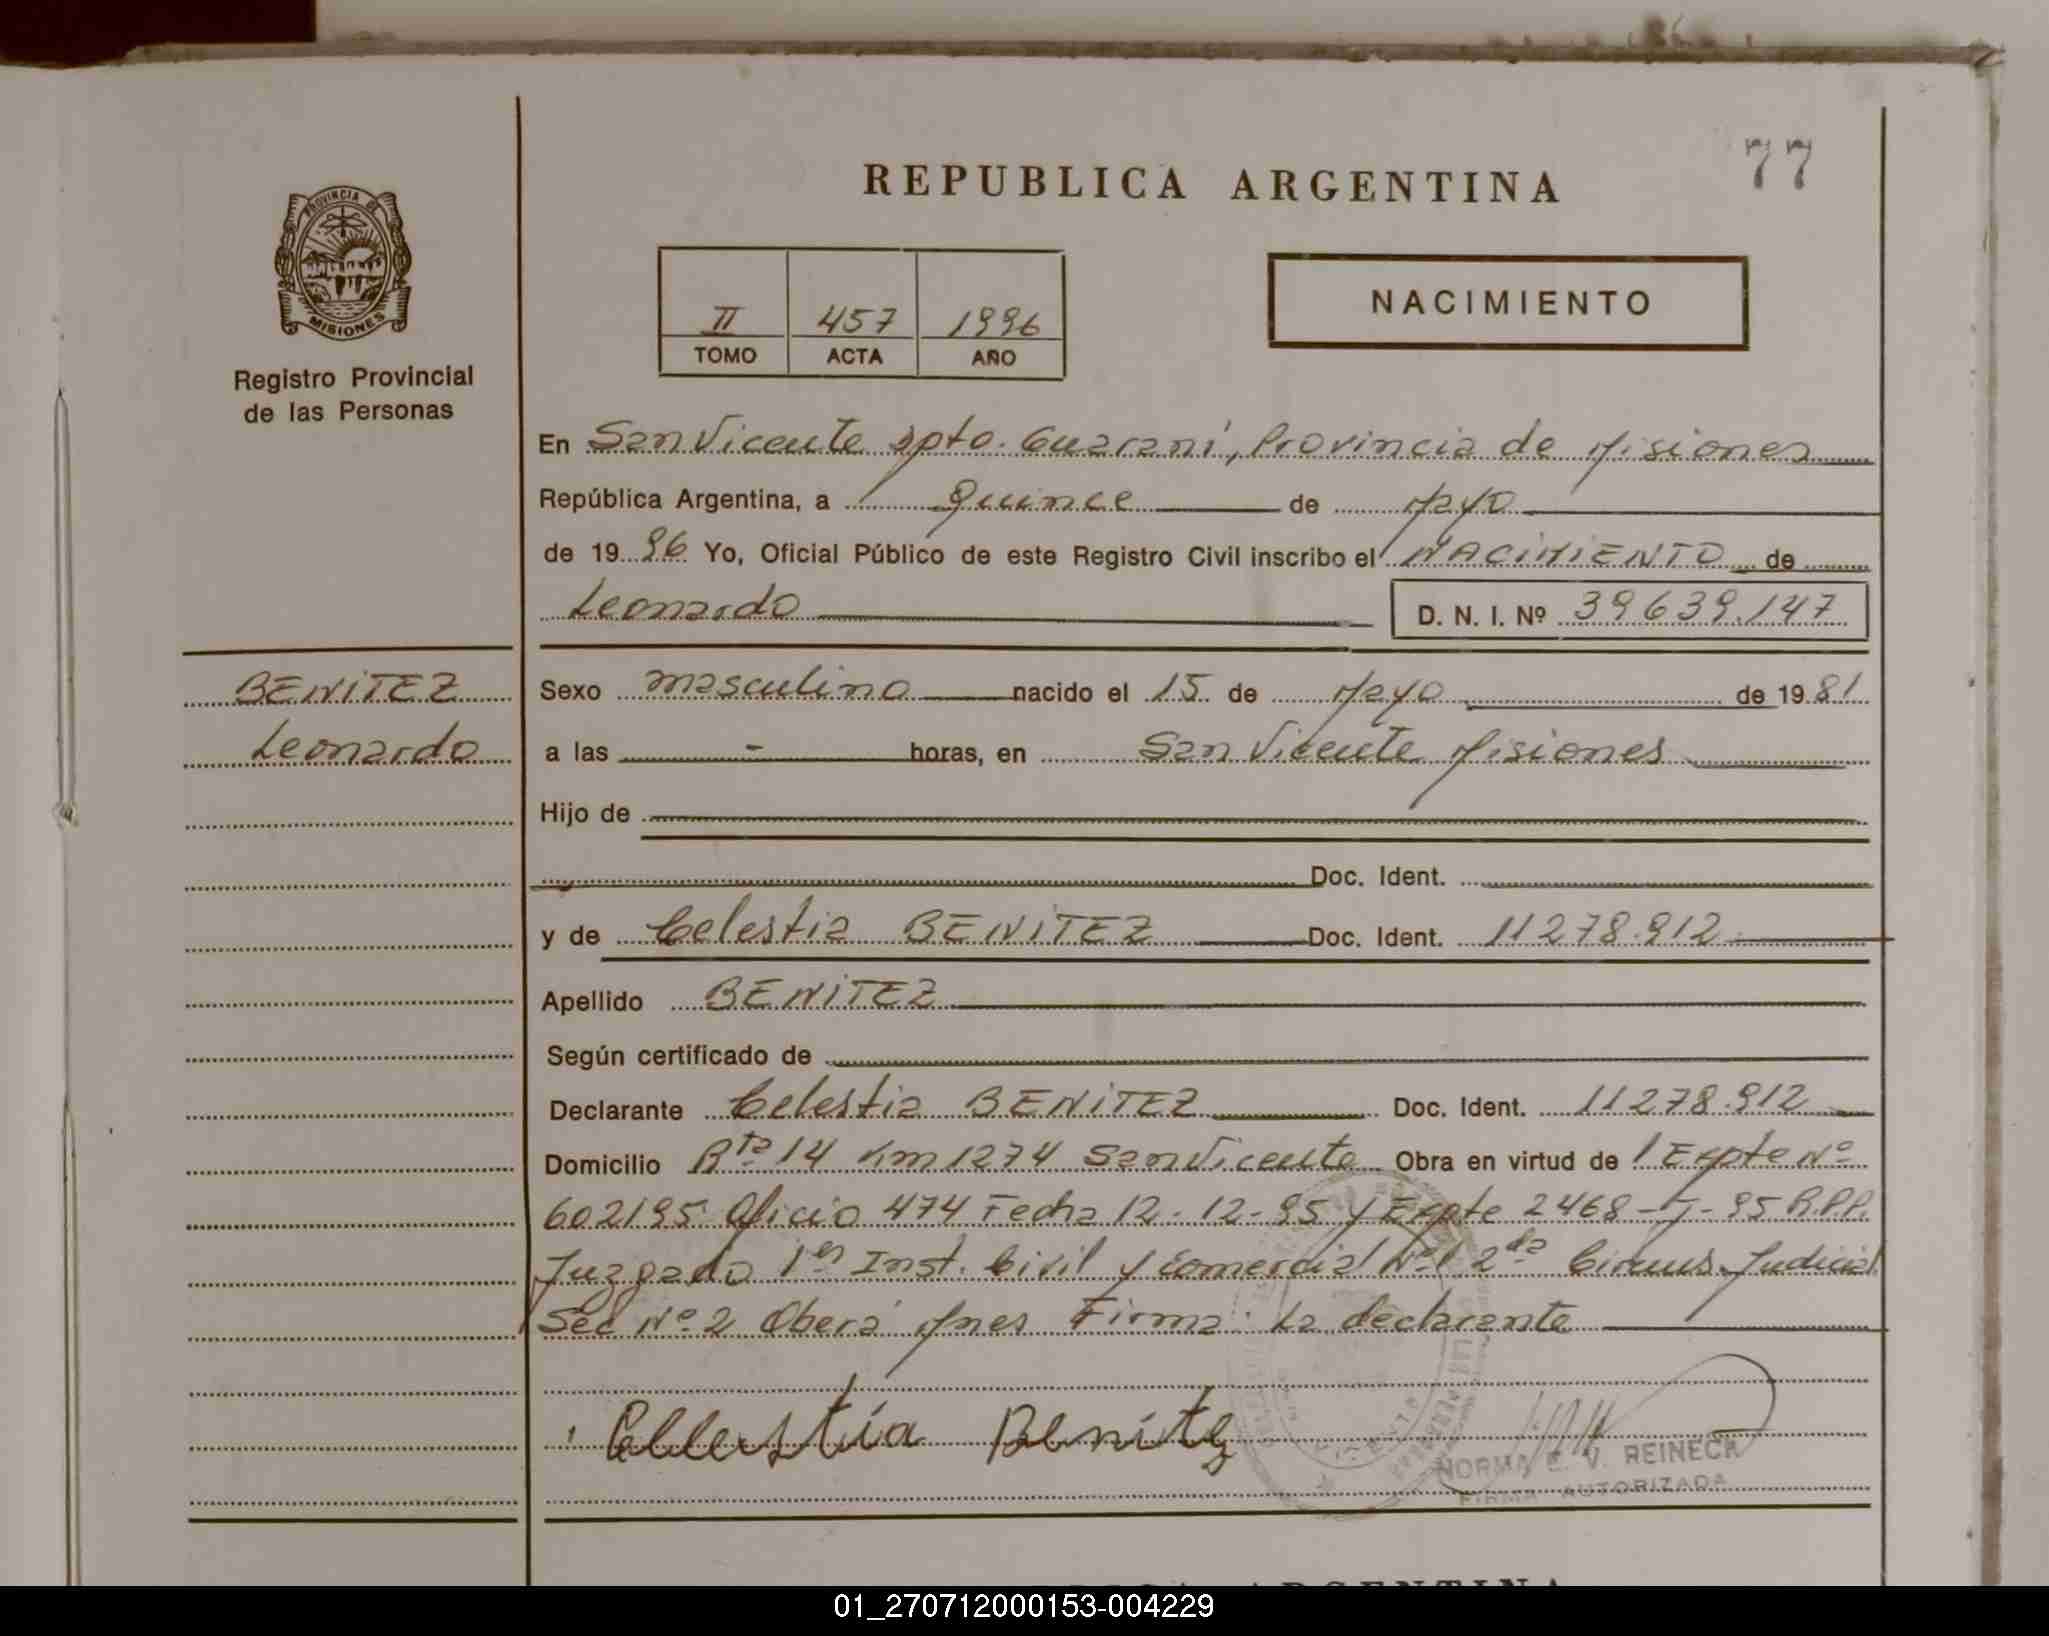 77
REPUBLICA ARGENTINA
PROVINCIA DE
MISIONES
Registro Provincial
de las Personas
II 457 1996
TOMO ACTA AÑO
NACIMIENTO
En San Vicente Dpto. Guaraní, Provincia de Misiones
República Argentina, a Quince de Mayo
de 1996 Yo, Oficial Público de este Registro Civil inscribo el NACIMIENTO de
Leonardo D. N. I. Nº 39639.147
BENITEZ
Leonardo
Sexo masculino nacido el 15 de Mayo de 1981
a las - horas, en San Vicente Misiones
Hijo de
Doc. Ident.
y de Celestia BENITEZ Doc. Ident. 11278.912
Apellido BENITEZ
Según certificado de
Declarante Celestia BENITEZ Doc. Ident. 11278.912
Domicilio Rta 14 Km 1274 San Vicente Obra en virtud de / Expte Nº
602195 Oficio 474 Fecha 12-12-95 y Expte 2468-J-95 R.P.P.
Juzgado 1er Inst. Civil y Comercial Nº1 2da Circuns. Judicial
Sec Nº 2 Oberá Mnes Firma: La declarante
Cellestia Benitez
NORMA E. V. REINECK
FIRMA AUTORIZADA
01_270712000153-004229